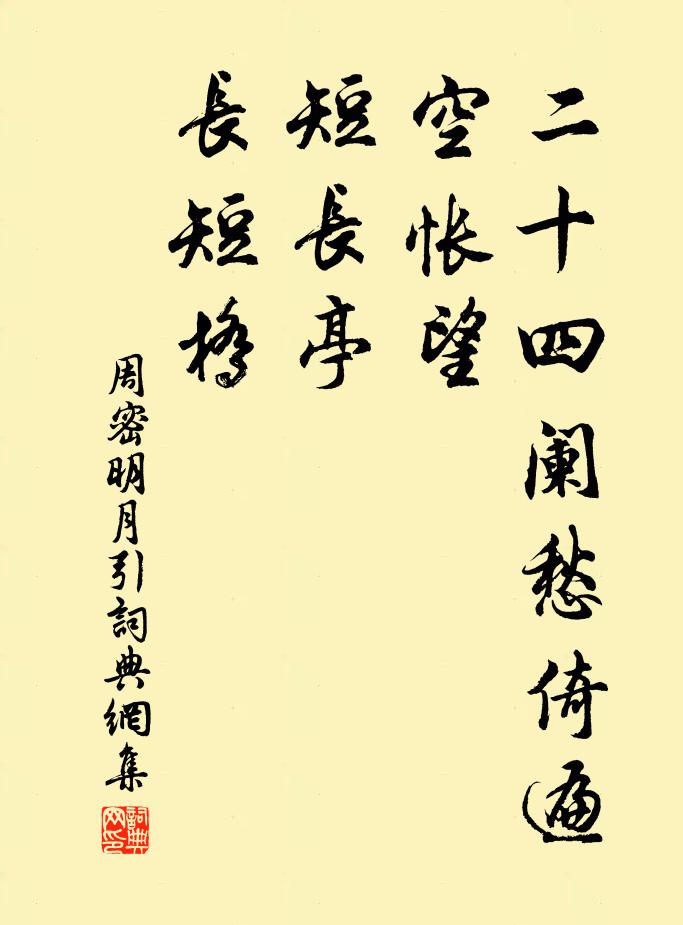 二十四阑愁倚遍
空怅望
短長亭
長短橋
周密明月引詞典網集
詞典网印